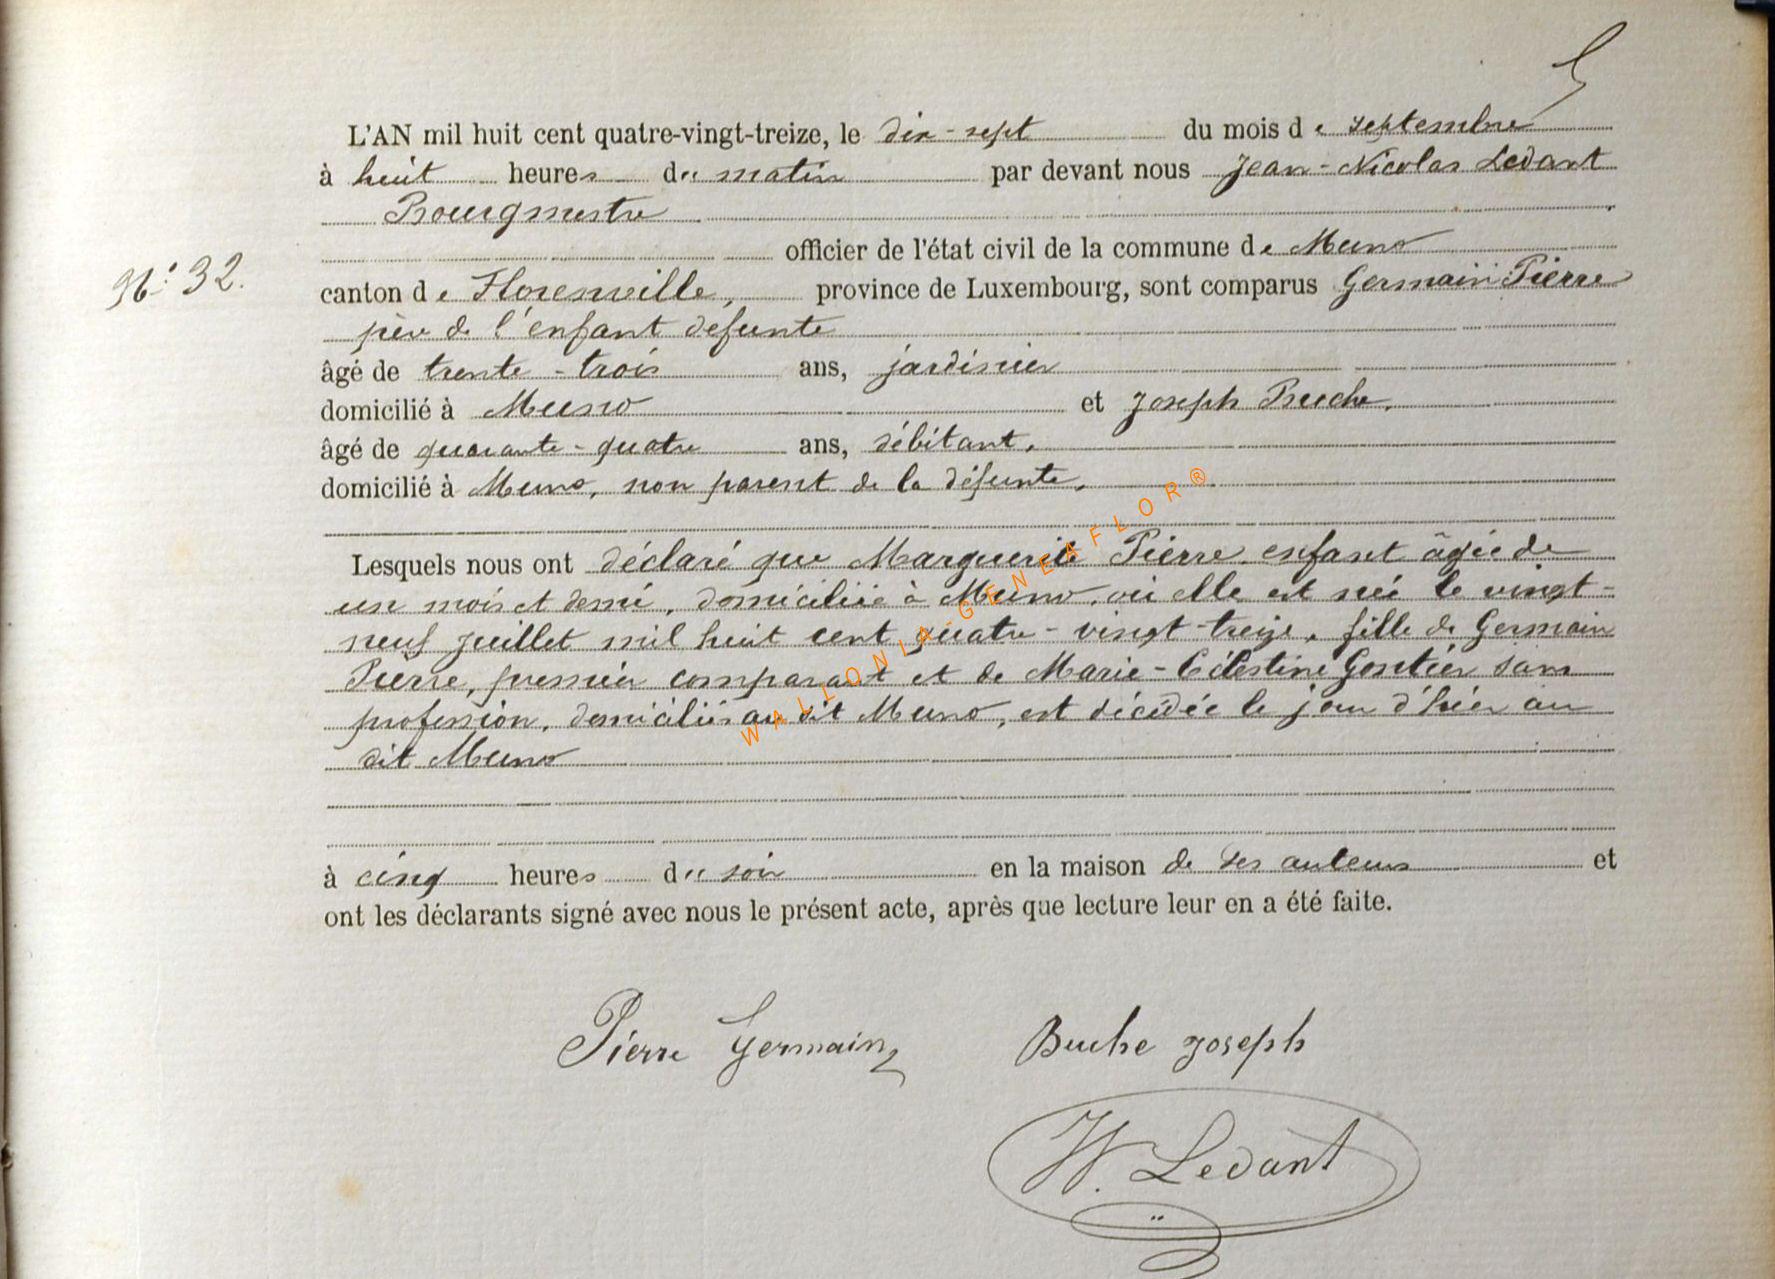 L'AN mil huit cent quatre-vingt-treize, le dix-sept du mois de septembre
à huit heures du matin par devant nous Jean-Nicolas Ledant
Bourgmestre
officier de l'état civil de la commune de Muno
N°: 32.
canton de Florenville, province de Luxembourg, sont comparus Germain Pierre
père de l'enfant défunte
âgé de trente-trois ans, jardinier
domicilié à Muno et Joseph Buche,
âgé de quarante-quatre ans, débitant,
domicilié à Muno, non parent de la défunte,
Lesquels nous ont déclaré que Marguerite Pierre, enfant âgée de
un mois et demi, domiciliée à Muno, où elle est née le vingt-
neuf juillet mil huit cent quatre-vingt-treize, fille de Germain
Pierre, premier comparant et de Marie-Célestine Gontier sans
profession, domiciliés au dit Muno, est décédée le jour d'hier au
dit Muno
à cinq heures du soir en la maison de ses auteurs et
ont les déclarants signé avec nous le présent acte, après que lecture leur en a été faite.
Pierre Germain Buche Joseph
N. Ledant
WALLONIA-GENEAFLOR®